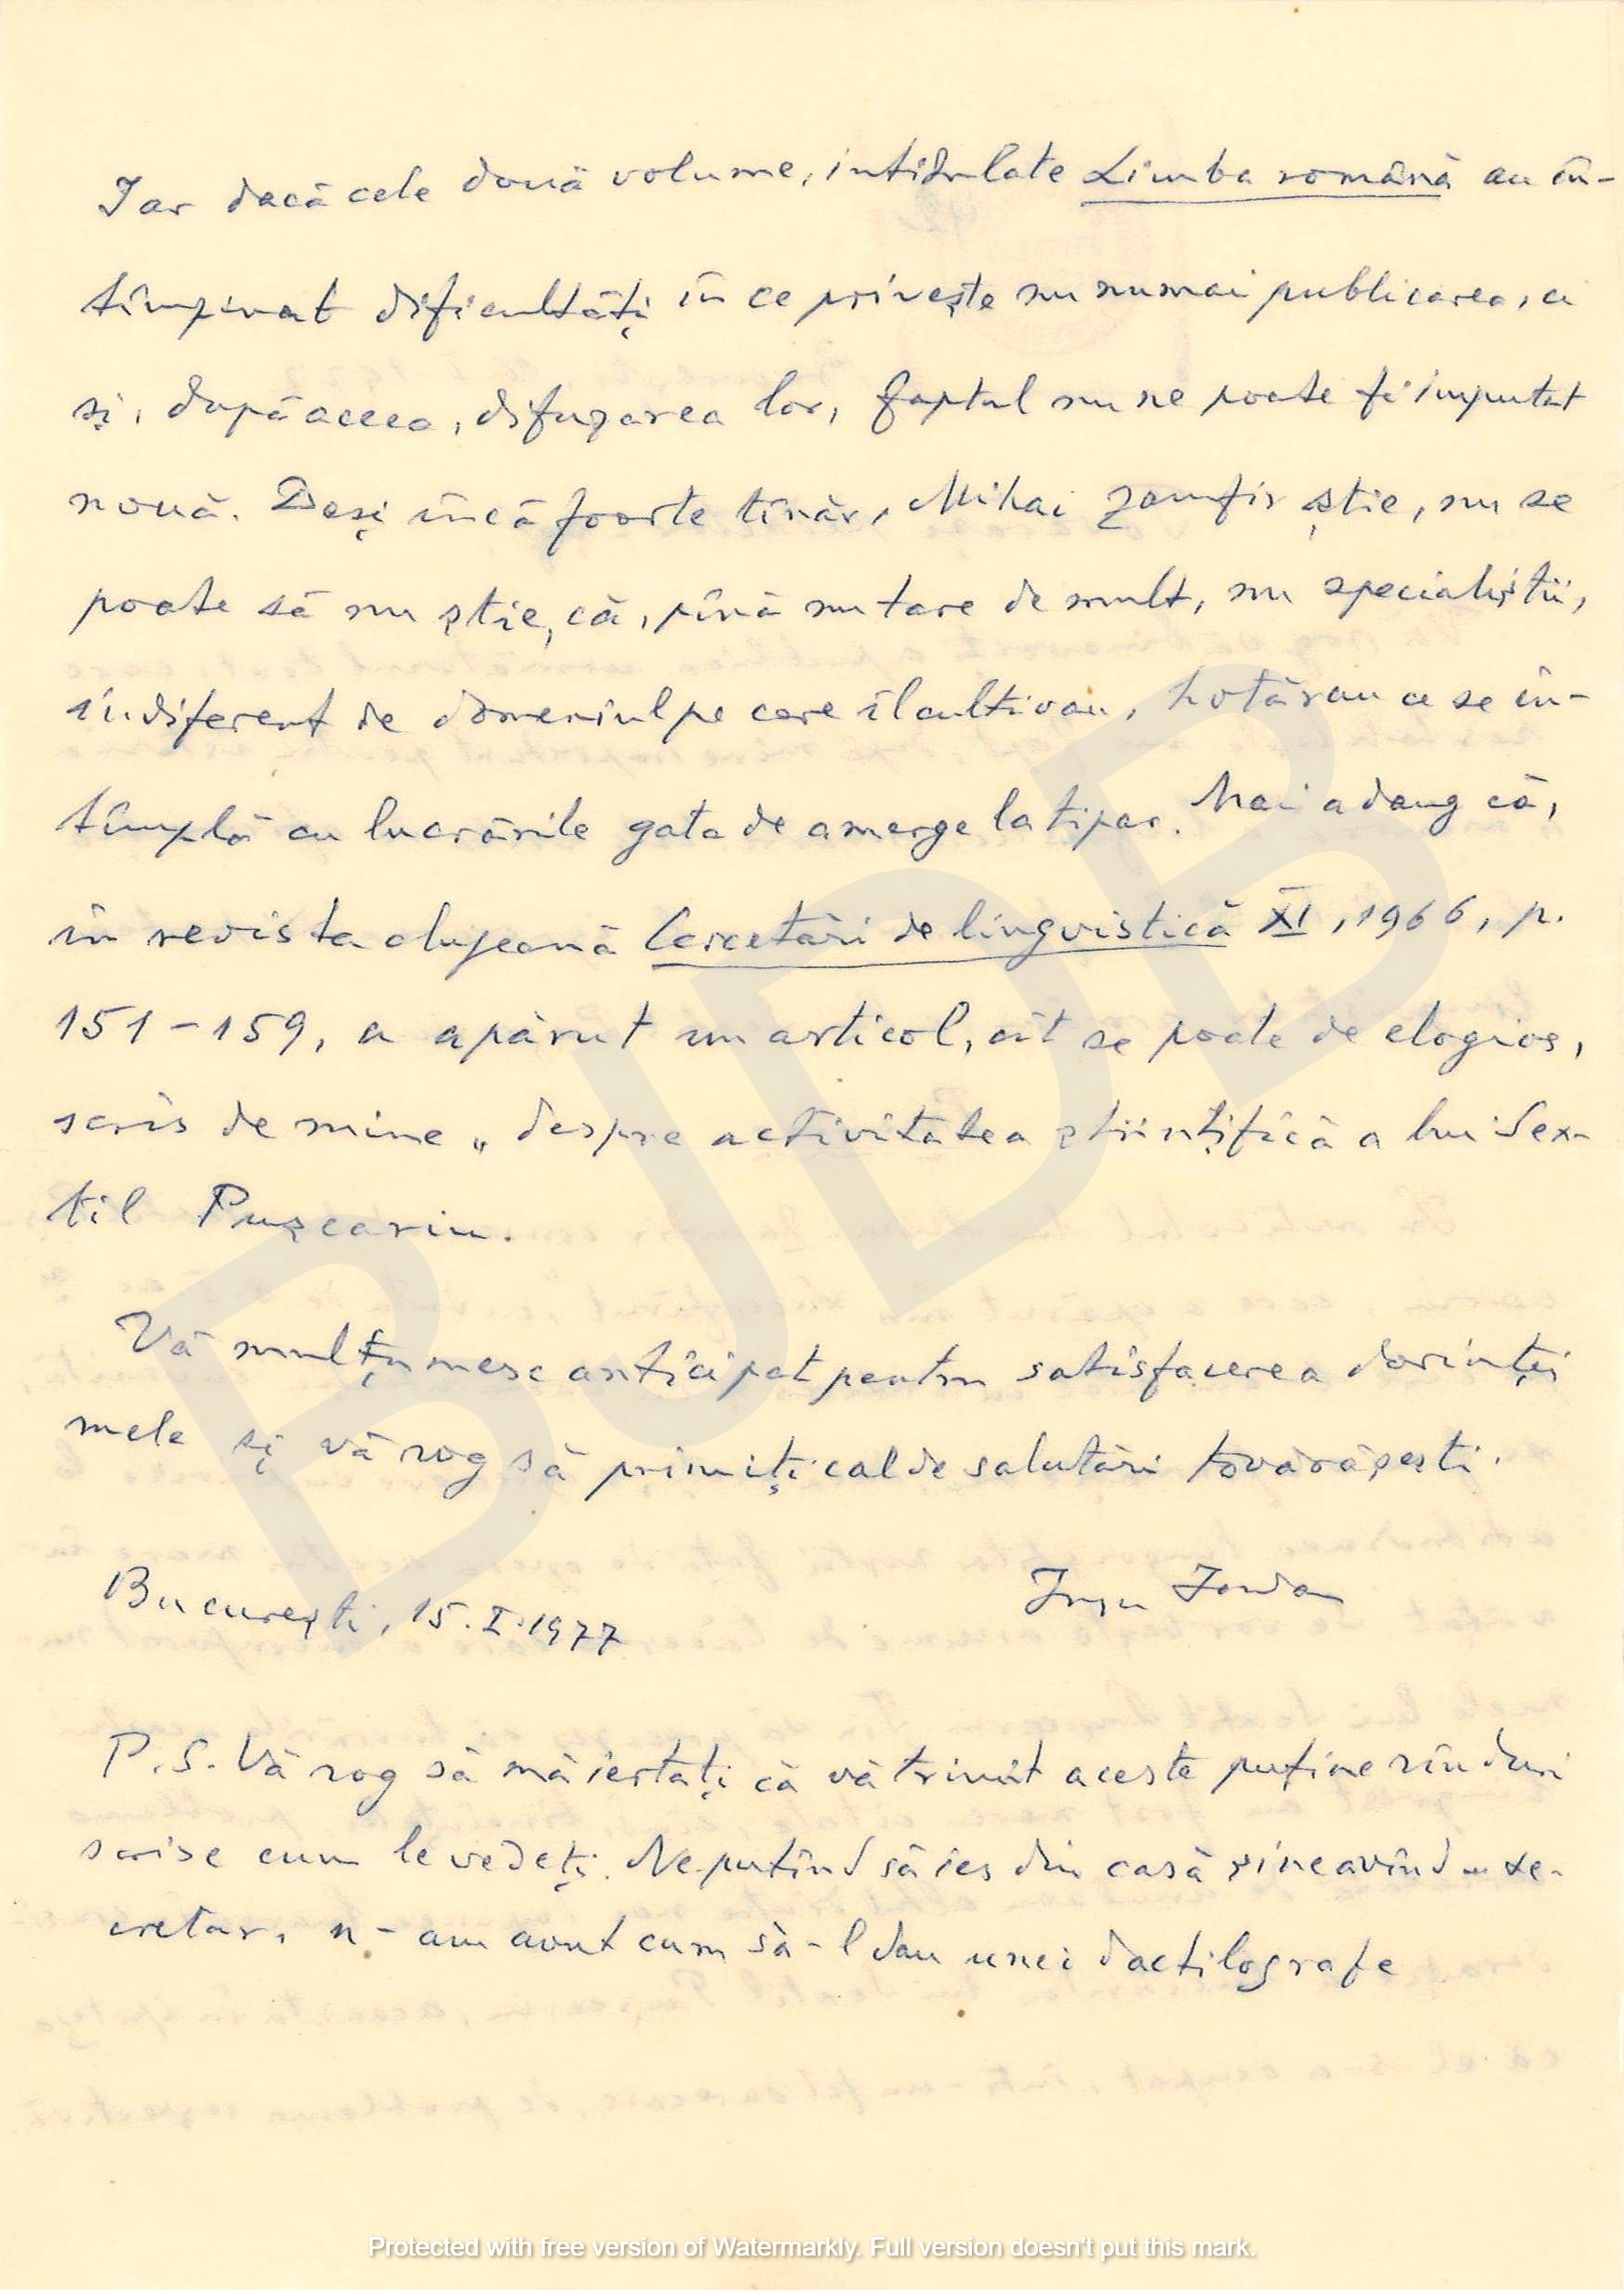 Iar dacă cele două volume, intitulate Limba română au în-
tîmpinat dificultăți în ce privește nu numai publicarea, ci
și, după aceea, difuzarea lor, faptul nu ne poate fi imputat
nouă. Deși încă foarte tînăr, Mihai Zamfir știe, nu se
poate să nu știe, că, pînă nu tare de mult, nu specialiștii,
indiferent de domeniul pe care îl cultivau, hotărau ce se în-
tîmplă cu lucrările gata de a merge la tipar. Mai adaug că,
în revista clujeană Cercetări de lingvistică XI, 1966, p.
151-159, a apărut un articol, cît se poate de elogios,
scris de mine „ despre activitatea științifică a lui Sex-
til Pușcariu.
Vă mulțumesc anticipat pentru satisfacerea dorinței
mele și vă rog să primiți calde salutări tovărășești.
București, 15.I.1977
Iorgu Iordan
P.S. Vă rog să mă iertați că vă trimit aceste puține rînduri
scrise cum le vedeți. Neputînd să ies din casă și neavînd se-
cretar, n-am avut cum să-l dau unei dactilografe
BJDB
Protected with free version of Watermarkly. Full version doesn't put this mark.